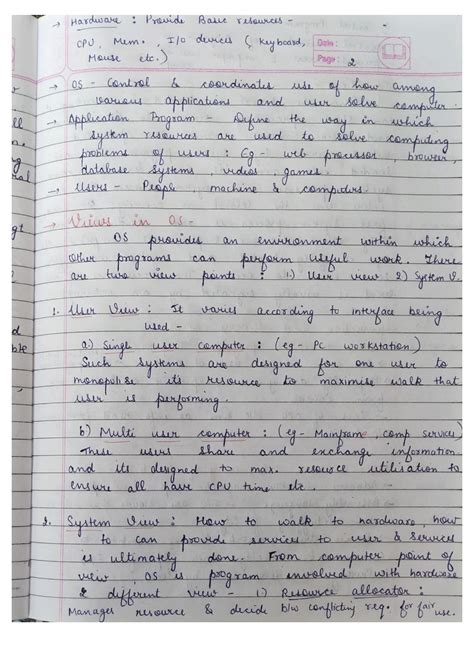 → Hardware : Provide Basic resources -
CPU, Mem., I/o devices ( keyboard,
Mouse etc.)
Date :
Page : 2
→ OS - Control & coordinates use of how among
various applications and user solve computer
→ Application Program - Define the way in which
system resources are used to solve computing
problems of users : Eg - web processor browser,
database systems, videos, games.
→ Users - People, machine & computers.
→ Views in OS -
OS provides an environment within which
other programs can perform useful work. There
are two view points : 1) User view 2) System V.
1. User View : It varies according to interface being
used -
a.) Single user computer : (eg - PC workstation)
Such systems are designed for one user to
monopolise its resource to maximise walk that
user is performing.
b) Multi user computer : (eg - Mainframe, comp service)
These users share and exchange information
and its designed to max. resource utilisation to
ensure all have CPU time etc.
2. System View : How to walk to hardware, how
to can provide services to user & services
is ultimately done. From computer point of
view, OS is program involved with hardware
& different view - 1) Resource allocator :
Manages resource & decide b/w conflicting req. for fair
use.